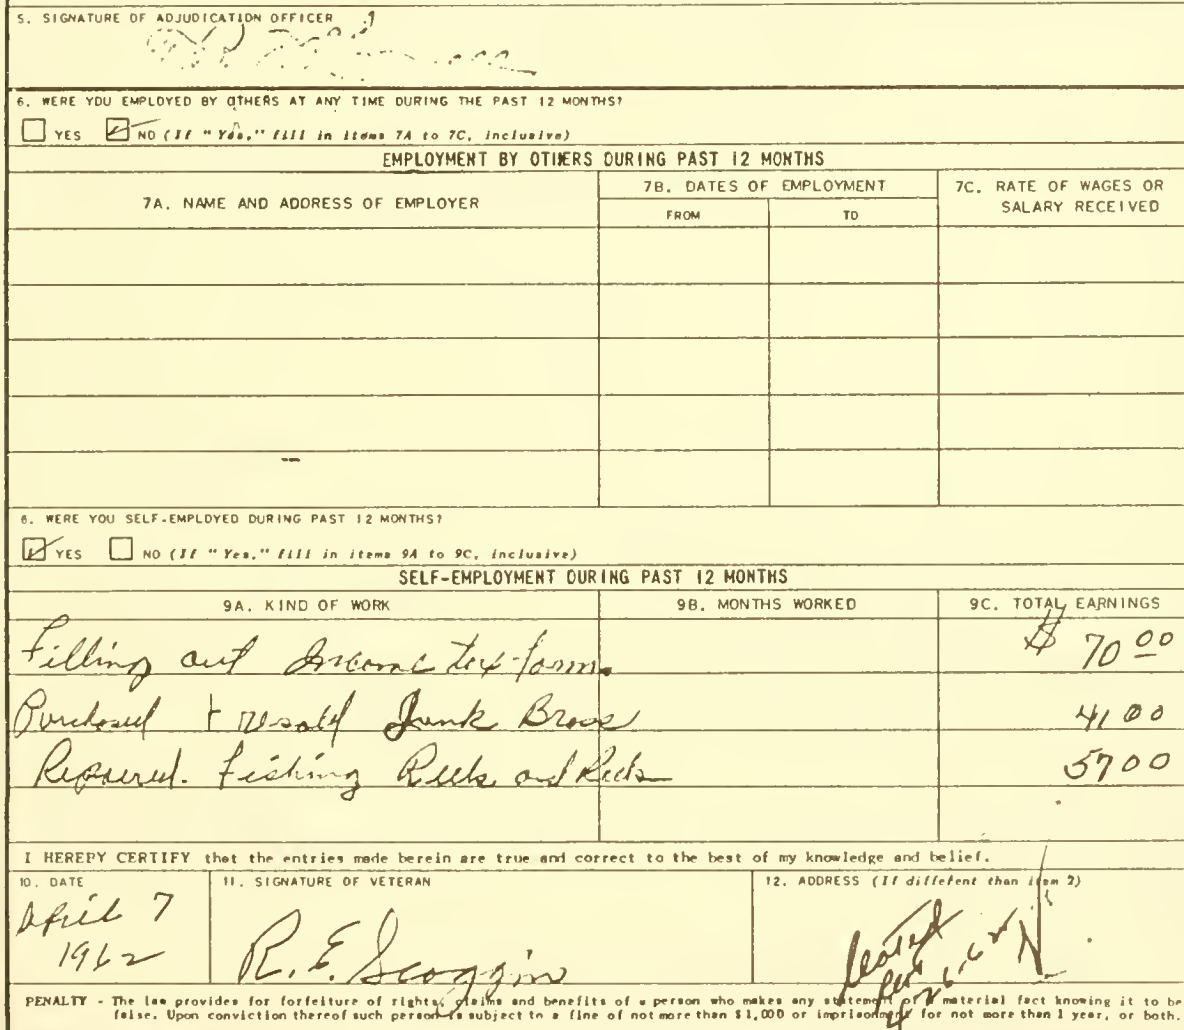 5. SIGNATURE OF ADJUDICATION OFFICER
6. WERE YOU EMPLOYED BY OTHERS AT ANY TIME DURING THE PAST 12 MONTHS?
YES NO (If "Yes," fill in items 7A to 7C, inclusive)
EMPLOYMENT BY OTHERS DURING PAST 12 MONTHS
7A. NAME AND ADDRESS OF EMPLOYER
7B. DATES OF EMPLOYMENT
FROM
TO
7C. RATE OF WAGES OR
SALARY RECEIVED
8. WERE YOU SELF-EMPLOYED DURING PAST 12 MONTHS?
YES NO (If "Yes," fill in items 9A to 9C, inclusive)
SELF-EMPLOYMENT DURING PAST 12 MONTHS
9A. KIND OF WORK
9B. MONTHS WORKED
9C. TOTAL EARNINGS
Filling out Income tax form. $ 70 00
Purchased + resold Junk Brass 41 00
Repaired. Fishing Reels and 57 00
I HEREBY CERTIFY that the entries made herein are true and correct to the best of my knowledge and belief.
10. DATE
April 7
1962
11. SIGNATURE OF VETERAN
R. E. Scoggin
12. ADDRESS (If different than item 2)
PENALTY - The law provides for forfeiture of rights, claims and benefits of a person who makes any statement of a material fact knowing it to be
false. Upon conviction thereof such person is subject to a fine of not more than $1,000 or imprisonment for not more than 1 year, or both.